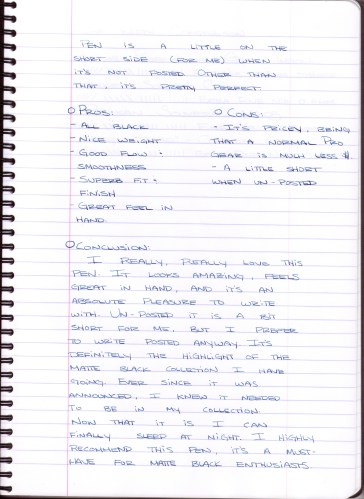 PEN IS A LITTLE ON THE
SHORT SIDE (FOR ME) WHEN
IT'S NOT POSTED. OTHER THAN
THAT, IT'S PRETTY PERFECT.
PROS:
- ALL BLACK
- NICE WEIGHT
- GOOD FLOW +
SMOOTHNESS
- SUPERB FIT +
FINISH
- GREAT FEEL IN
HAND.
CONS:
- IT'S PRICEY, BEING
THAT A NORMAL PRO
GEAR IS MUCH LESS $.
- A LITTLE SHORT
WHEN UN-POSTED
CONCLUSION:
I REALLY, REALLY LOVE THIS
PEN. IT LOOKS AMAZING, FEELS
GREAT IN HAND, AND IT'S AN
ABSOLUTE PLEASURE TO WRITE
WITH. UN-POSTED IT IS A BIT
SHORT FOR ME, BUT I PREFER
TO WRITE POSTED ANYWAY. IT'S
DEFINITELY THE HIGHLIGHT OF THE
MATTE BLACK COLLECTION I HAVE
GOING. EVER SINCE IT WAS
ANNOUNCED, I KNEW IT NEEDED
TO BE IN MY COLLECTION.
NOW THAT IT IS I CAN
FINALLY SLEEP AT NIGHT. I HIGHLY
RECOMMEND THIS PEN, IT'S A MUST-
HAVE FOR MATTE BLACK ENTHUSIASTS.